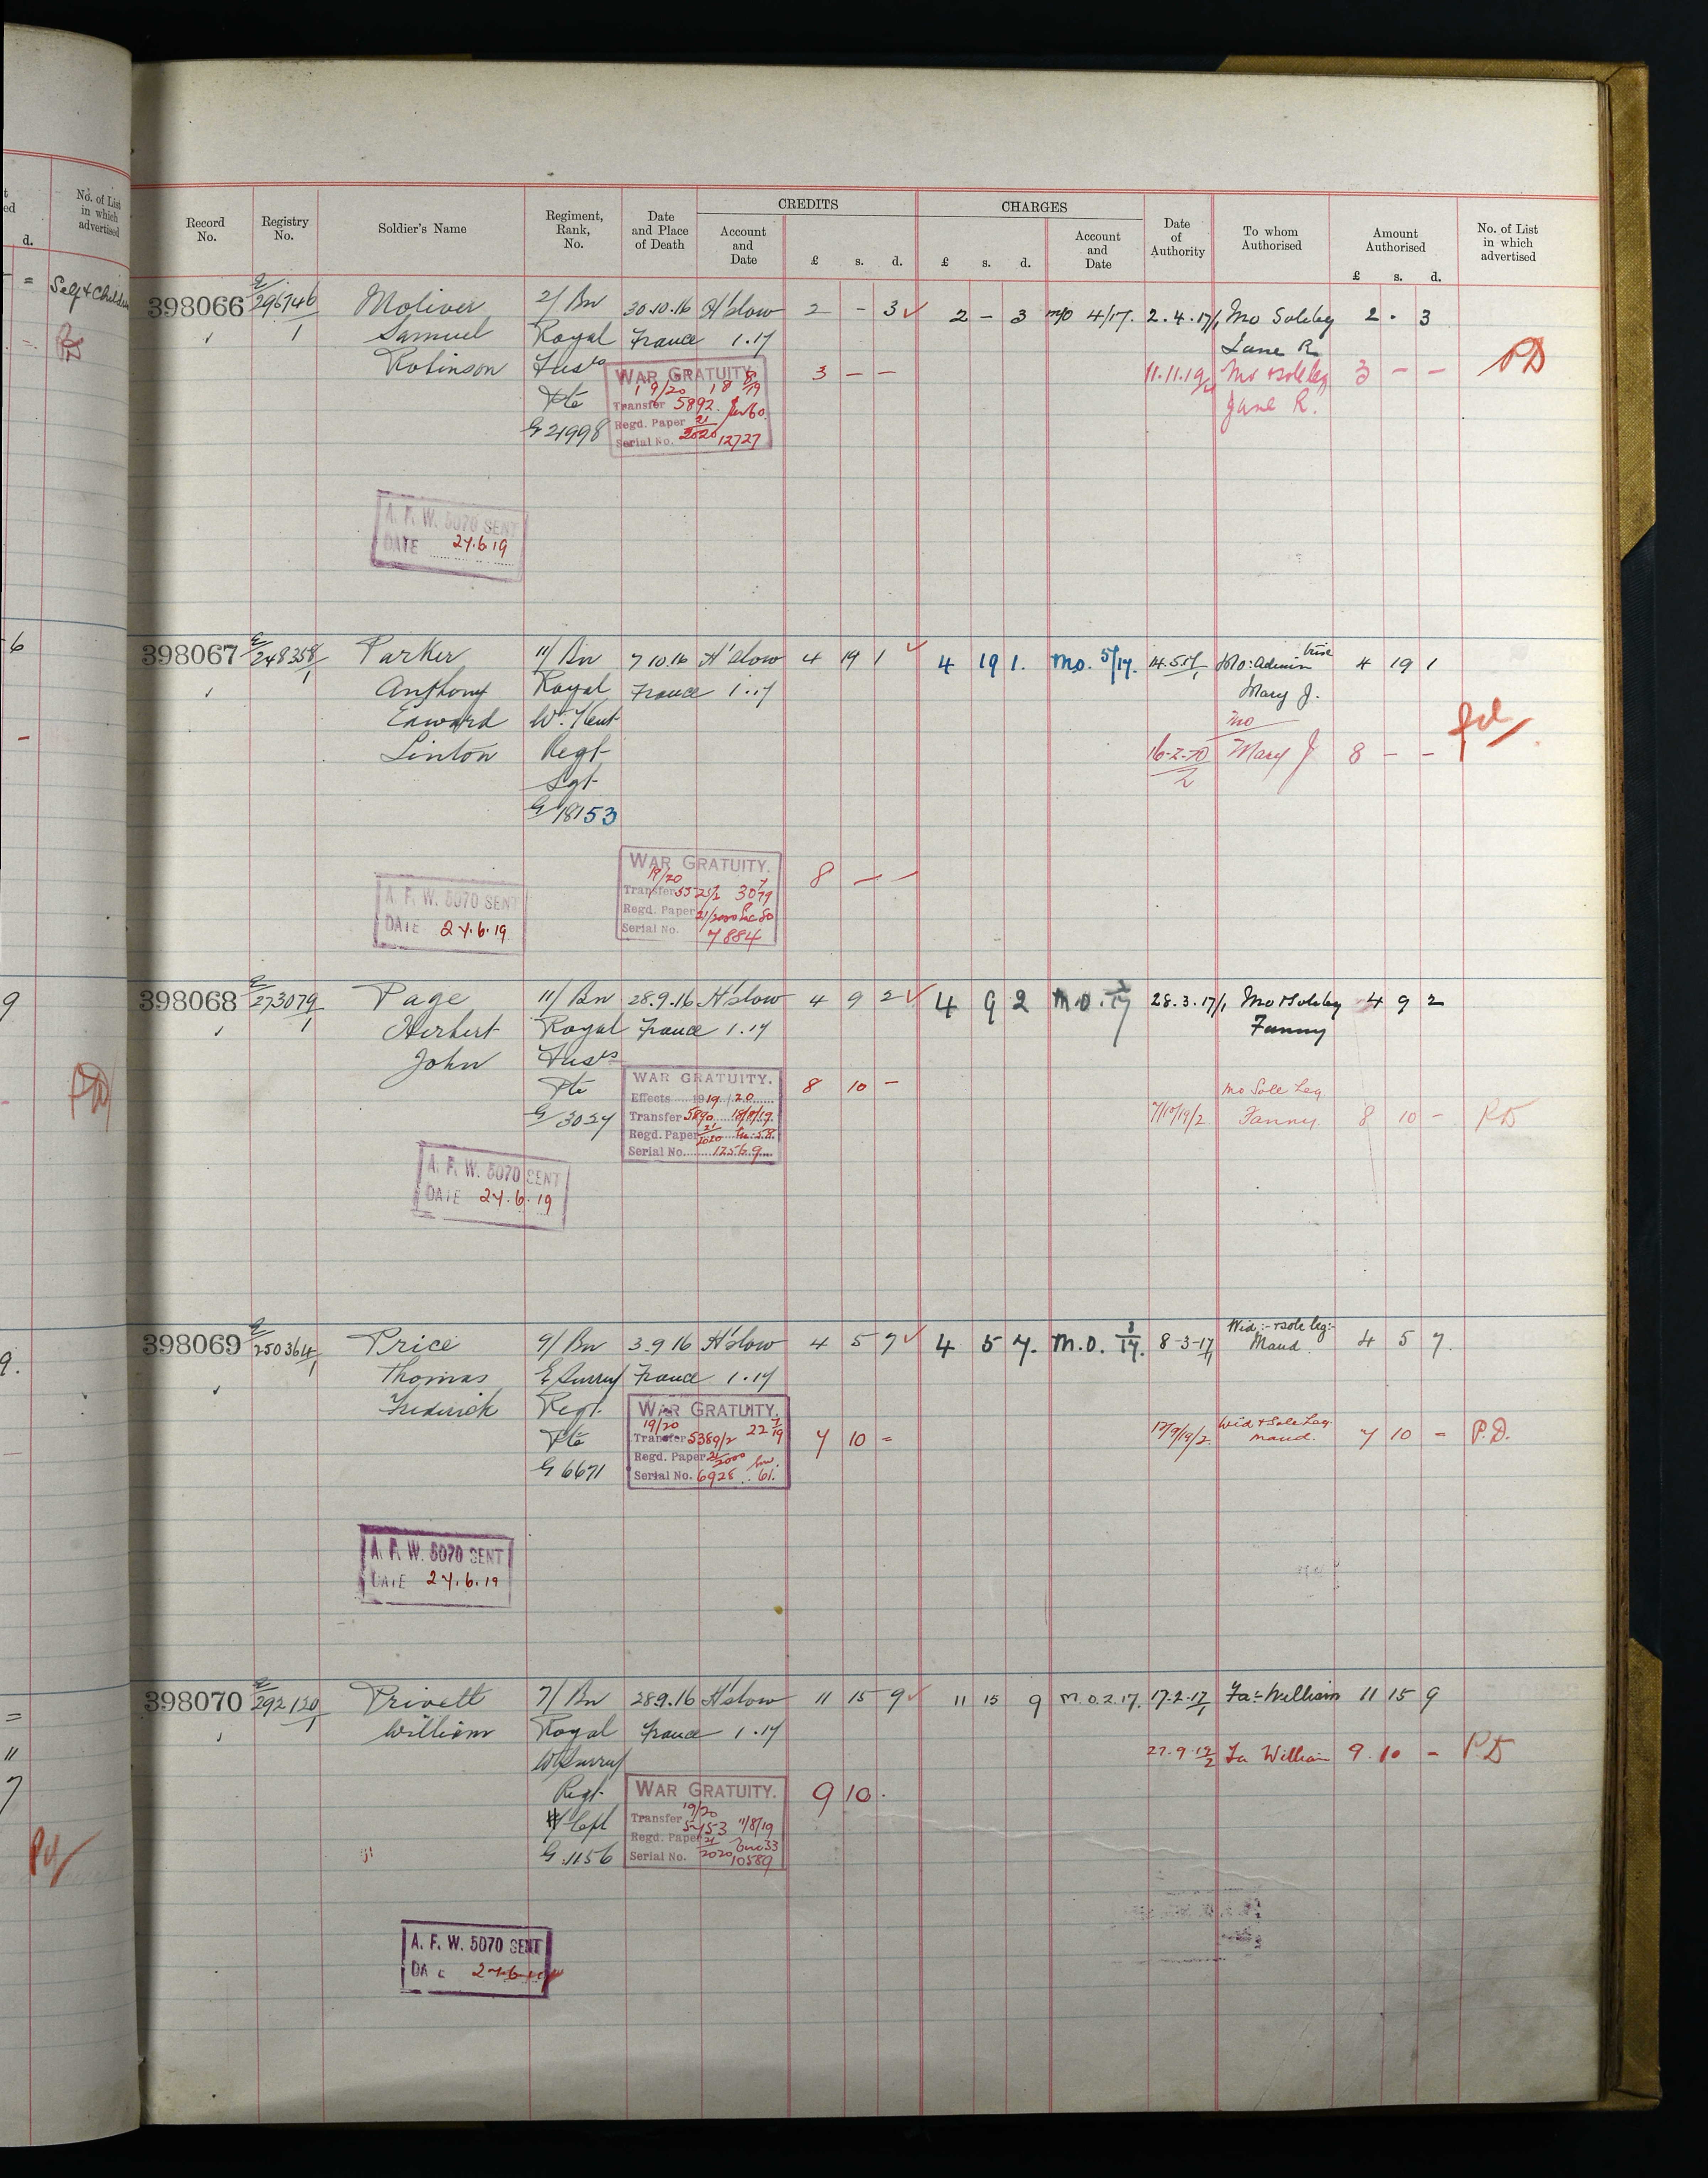 No. of List
in which
advertised
d.
Self & Children
CREDITS
CHARGES
Record
No.
Registry
No.
Soldier's Name
Regiment,
Rank,
No.
Date
and Place
of Death
Account
and
Date
£ s. d.
£ s. d.
Account
and
Date
Date
of
Authority
To whom
Authorised
Amount
Authorised
£ s. d.
No. of List
in which
advertised
398066 E/296746/1 Moliver 2/ Bn 30.10.16 H'slow 2 - 3 2 - 3 M/O 4/17. 2.4.17/1 Mo Soleleg 2 - 3
Samuel Royal France 1.17 Jane R
Robinson Fusrs 3 - - 11.11.19/2 Mo & sole leg 3 - - PD
Pte Jane R.
G 21998
WAR GRATUITY
19/20 18 8/19
Transfer 5892
Regd. Paper 21/2020
Serial No. 12727
A. F. W. 5070 SENT
DATE 27.6.19
398067 E/248358/1 Parker 11/ Bn 7.10.16 H'slow 4 19 1 4 19 1. Mo. 5/17. 14.5.17/1 Mo: Admin trix 4 19 1
Anthony Royal France 1.17 Mary J.
Edward W. Kent mo
Linton Regt 16-2-20/2 Mary J 8 - - Pd
Sgt
G/18153
WAR GRATUITY.
19/20
Transfer 5525/2 30 7/19
Regd. Paper 21/2000
Serial No. 7884
8 - -
A. F. W. 5070 SENT
DATE 27.6.19
398068 E/273079/1 Page 11/ Bn 28.9.16 H'slow 4 9 2 4 9 2 M.O. 3/17 28.3.17/1 Mo & Soleleg 4 9 2
Herbert Royal France 1.17 Fanny
John Fusrs
Pte 8 10 - Mo Sole Leg
G/3027 7/10/19/2 Fanny 8 10 - PD
WAR GRATUITY.
Effects 1919/20
Transfer 5890 18/8/19.
Regd. Paper 21/2020
Serial No. 12569
A. F. W. 5070 SENT
DATE 27.6.19
398069 E/250364/1 Price 9/ Bn 3.9.16 H'slow 4 5 7 4 5 7. M.O. 3/17. 8-3-17/1 Wid:- & sole leg:- 4 5 7.
Thomas E Surrey France 1.17 Maud.
Frederick Regt.
Pte 7 10 = 12/9/19/2. Wid & Sole Leg. 7 10 - P.D.
G 6671 Maud.
WAR GRATUITY.
19/20 22 7/19
Transfer 5389/2
Regd. Paper 21/2000
Serial No. 6928 61.
A. F. W. 5070 SENT
DATE 27.6.19
398070 E/292120/1 Privett 7/ Bn 28.9.16 H'slow 11 15 9 11 15 9 M.O.2.17. 17-2-17/1 Fa: William 11 15 9
William Royal France 1.17
W Surrey 27.9.19/2 Fa William 9.10 - PD
Regt. 9 10.
L/Cpl
G.1156
WAR GRATUITY.
19/20
Transfer 5753 11/8/19
Regd. Paper 21/2020
Serial No. 10589
A. F. W. 5070 SENT